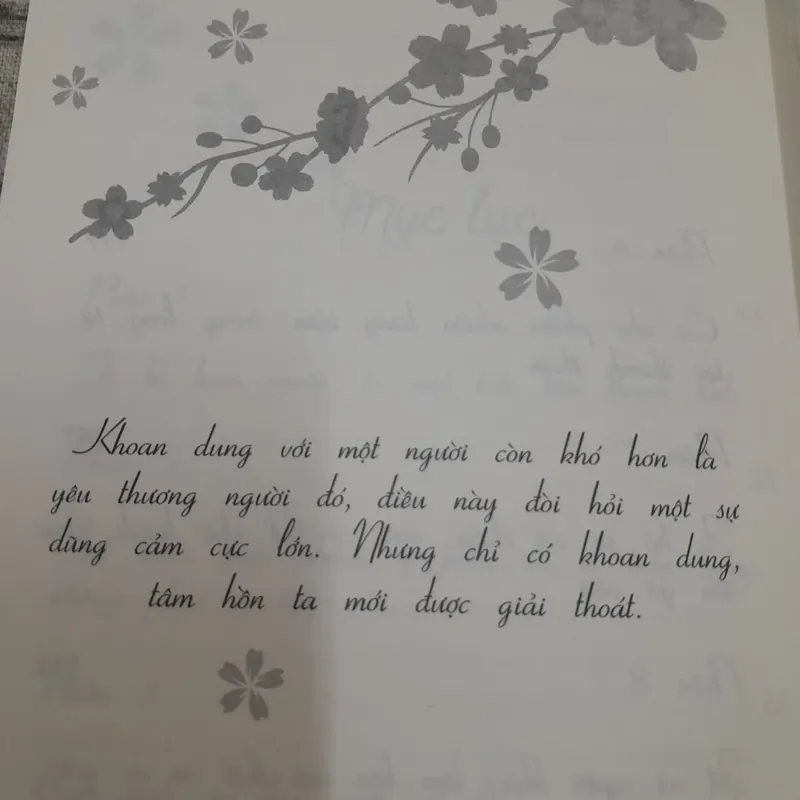 Mục lục
Khoan dung với một người còn khó hơn là
yêu thương người đó, điều này đòi hỏi một sự
dũng cảm cực lớn. Nhưng chỉ có khoan dung,
tâm hồn ta mới được giải thoát.